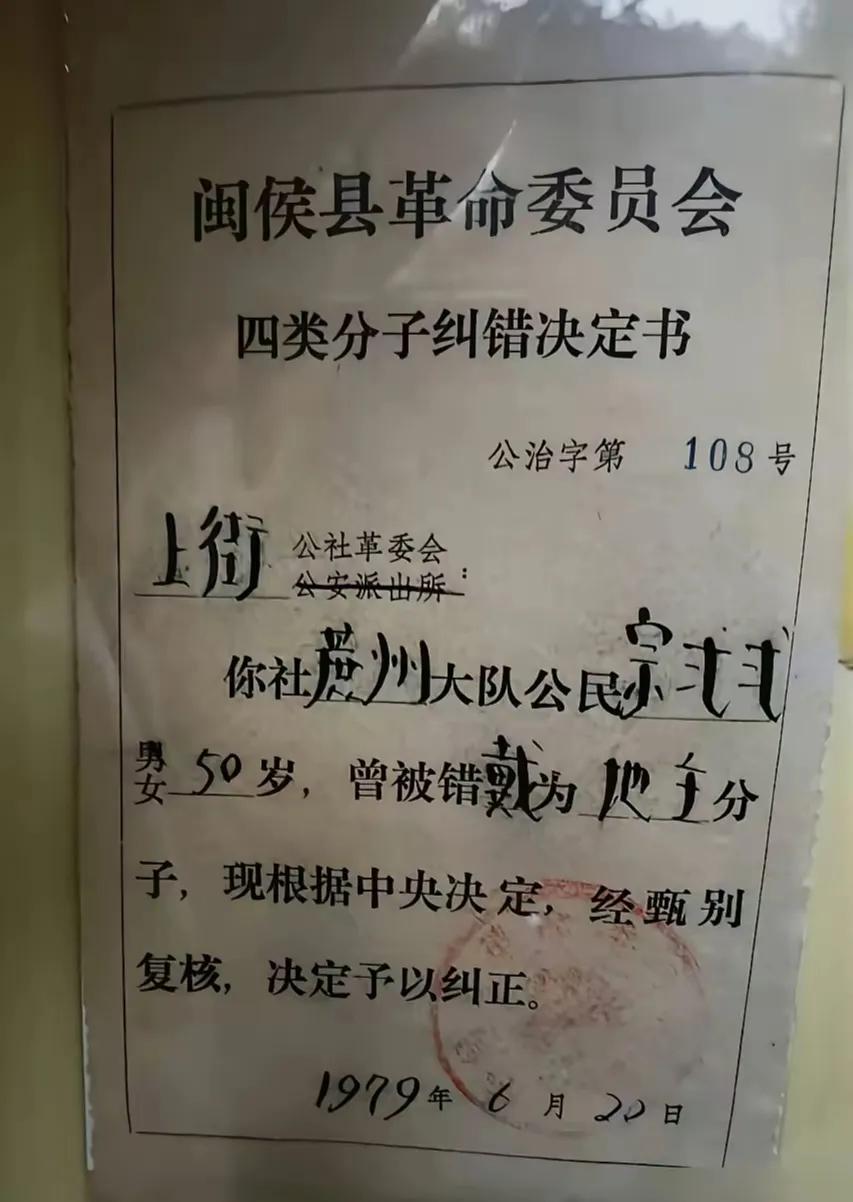 闽侯县革命委员会
四类分子纠错决定书
公治字第 108号
上街 公社革委会
公安派出所：
你社蔗州大队公民宗
男
女 50岁，曾被错戴为地主分
子，现根据中央决定，经甄别
复核，决定予以纠正。
1979年6月20日